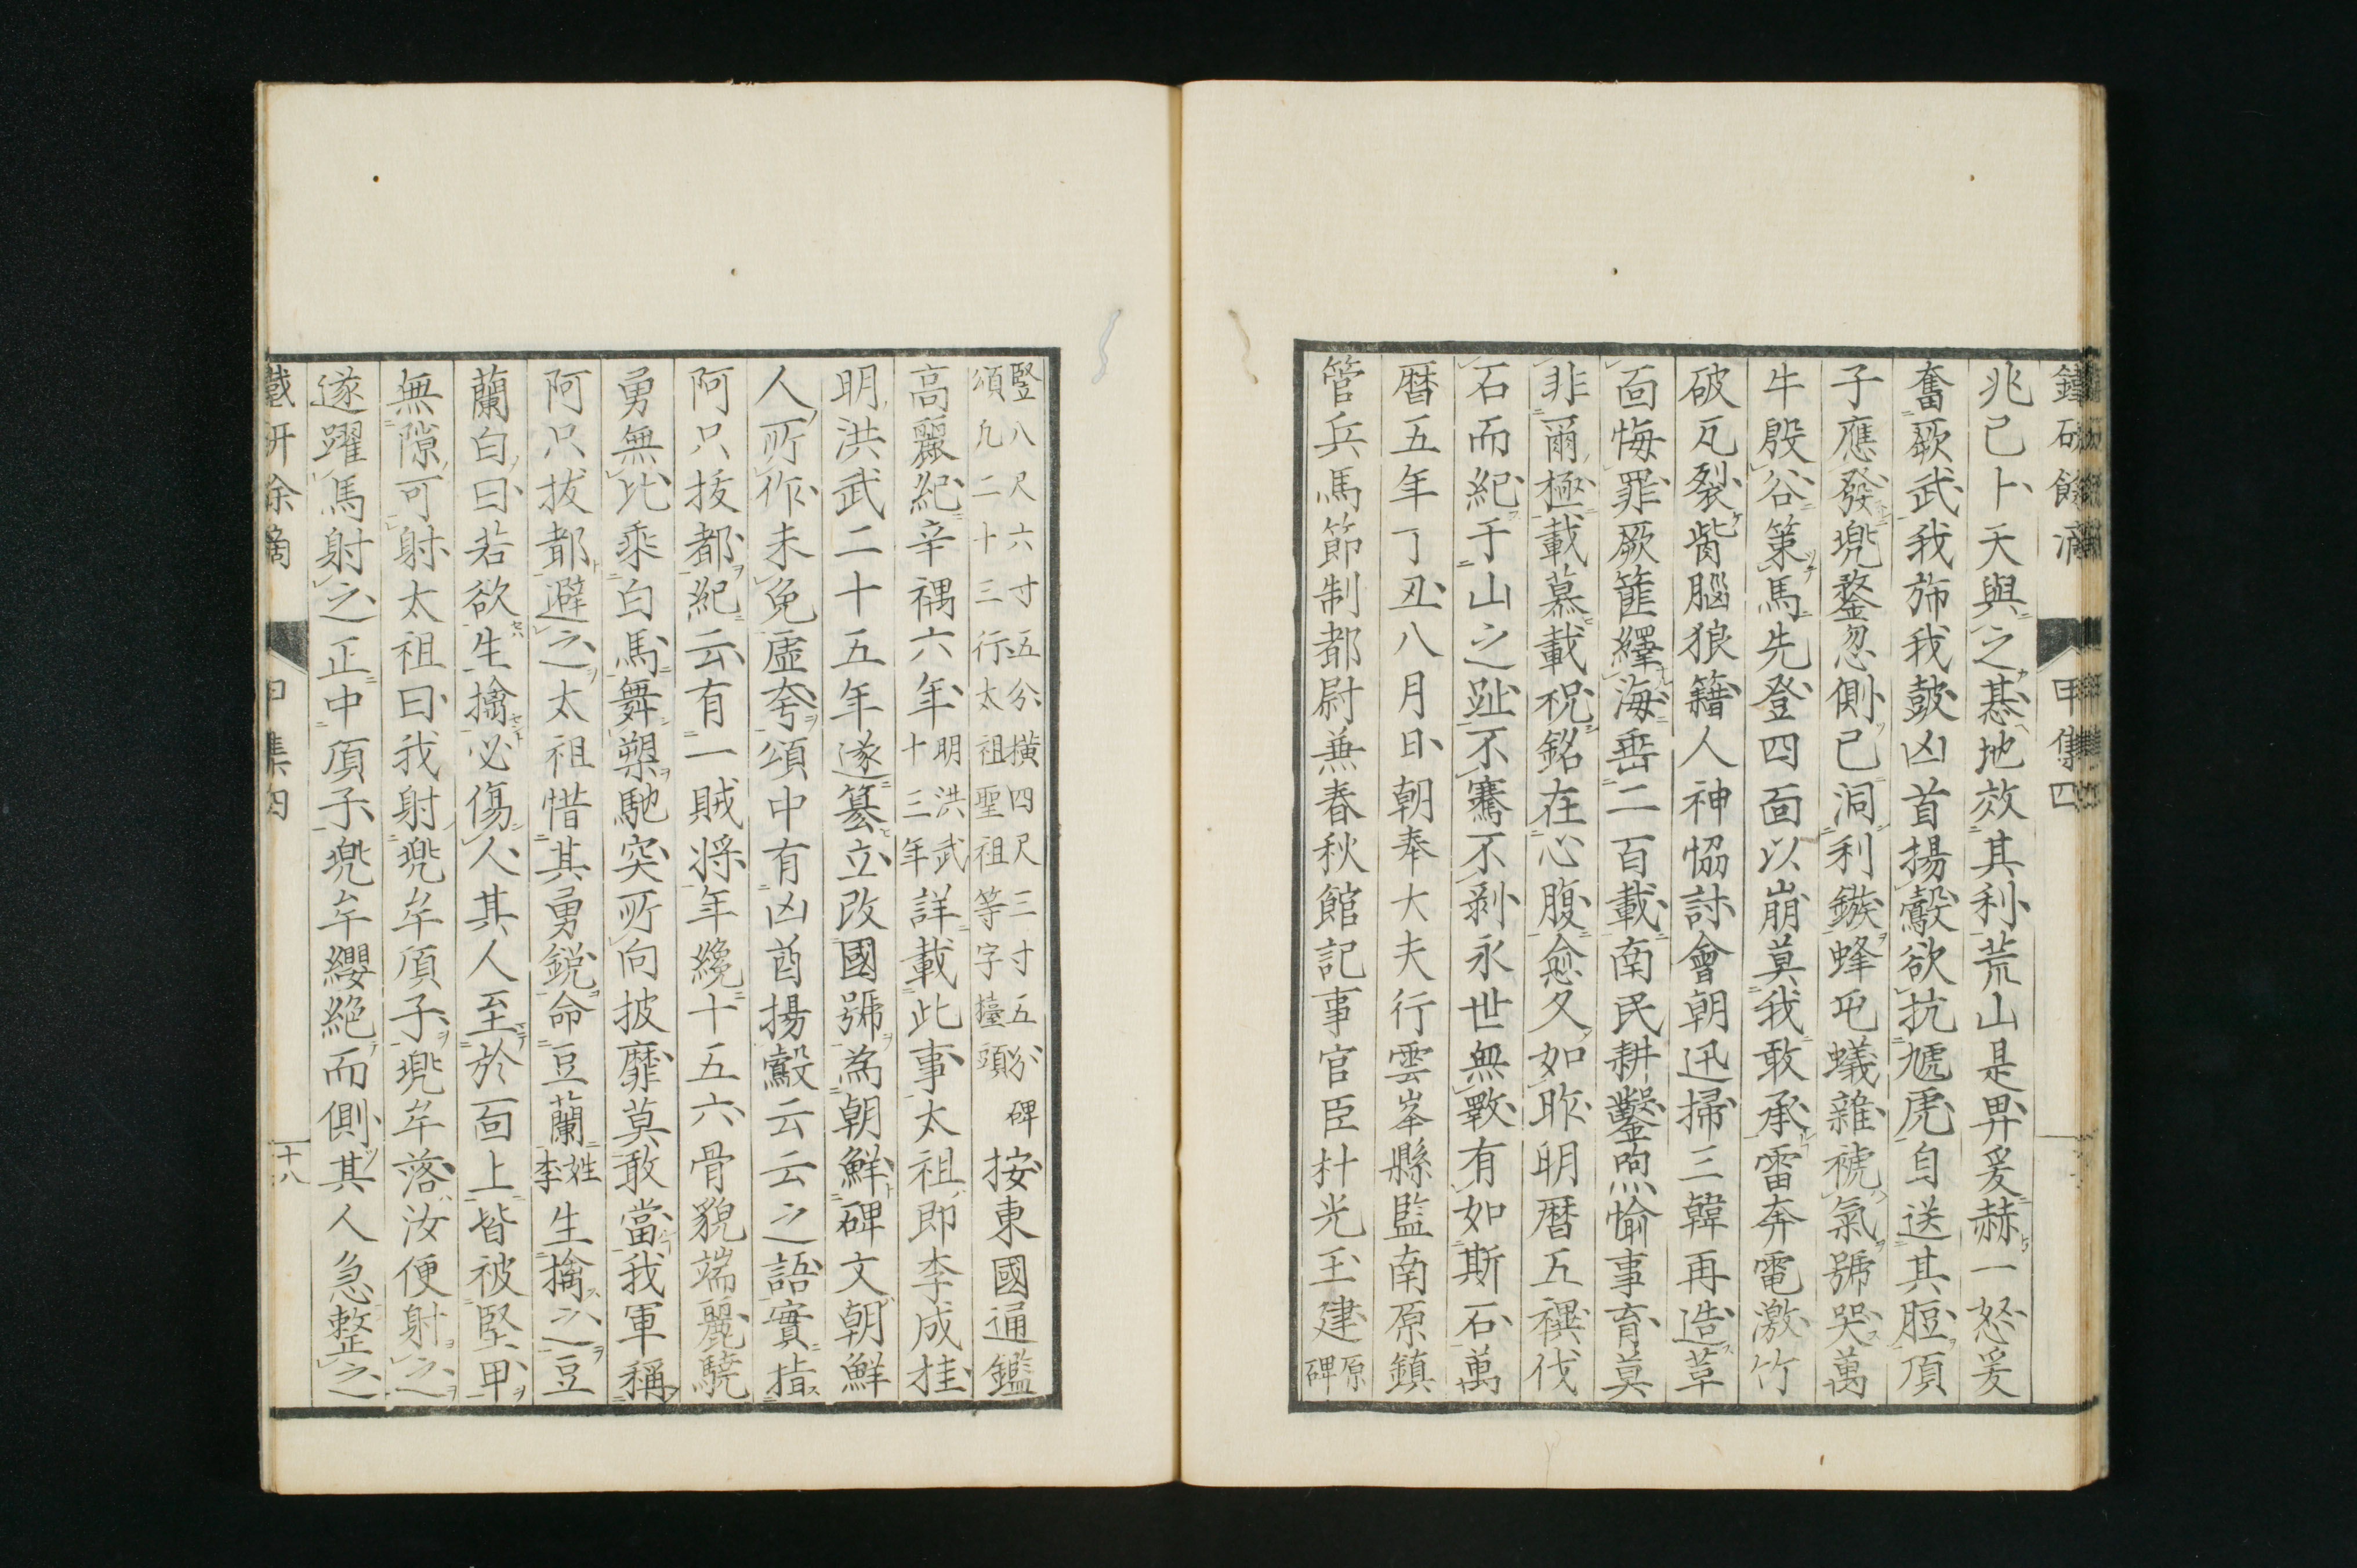 鐵研餘滴　甲集四
兆已卜天與之惎地效其利荒山是畀爰赫一怒爰
奮厥武我斾我鼓凶首揚鷇欲抗虓虎自送其脰頂
子應發兜鍪忽側已洞利鏃蜂屯蟻雜褫氣號哭萬
牛殷谷策馬先登四面以崩莫我敢承雷奔電激竹
破瓦裂胔腦狼籍人神恊討會朝迅掃三韓再造革
面悔罪厥篚繹海岳二百載南民耕鑿煦愉事育莫
非爾極載慕載祝銘在心腹愈久如昨明暦五禩伐
石而紀于山之趾不騫不剥永世無斁有如斯石萬
暦五年丁丑八月日朝奉大夫行雲峯縣監南原鎮
管兵馬節制都尉兼春秋館記事官臣朴光玉建原
碑
豎八尺六寸五分横四尺三寸五分碑
頌凢二十三行太祖聖祖等字擡頭
按東國通鑑
高麗紀辛禑六年明洪武
十三年
詳載此事太祖即李成桂
明洪武二十五年遂簒立改國號為朝鮮碑文朝鮮
人所作未免虚夸頌中有凶酋揚鷇云云之語實指
阿只抜都紀云有一賊将年纔十五六骨貌端麗驍
勇無比乘白馬舞槊馳突所向披靡莫敢當我軍稱
阿只拔都避之太祖惜其勇鋭命豆蘭姓
李
生擒之豆
蘭白曰若欲生擒必傷人其人至於面上皆被堅甲
無隙可射太祖曰我射兜牟頂子兜牟落汝便射之
遂躍馬射之正中頂子兜牟纓絶而側其人急整之
鐵研餘滴　甲集四　十八